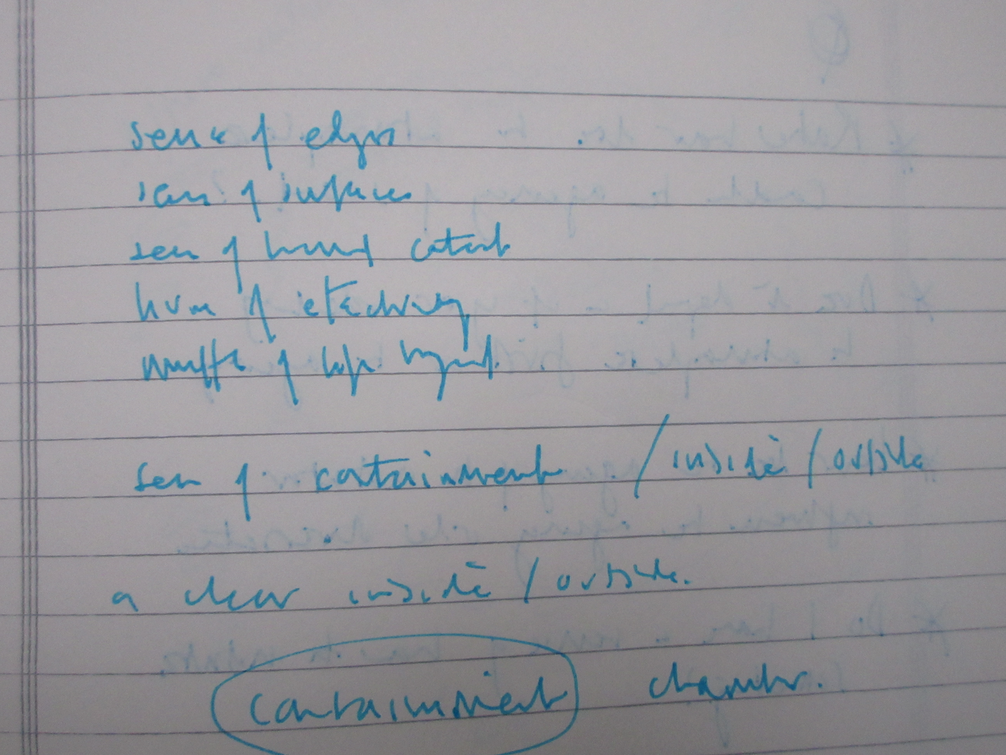 sense of edges
sense of surfaces
sense of human contact
hum of electricity
muffle of
sense of containment / inside / outside
a clear inside / outside.
containment chamber.